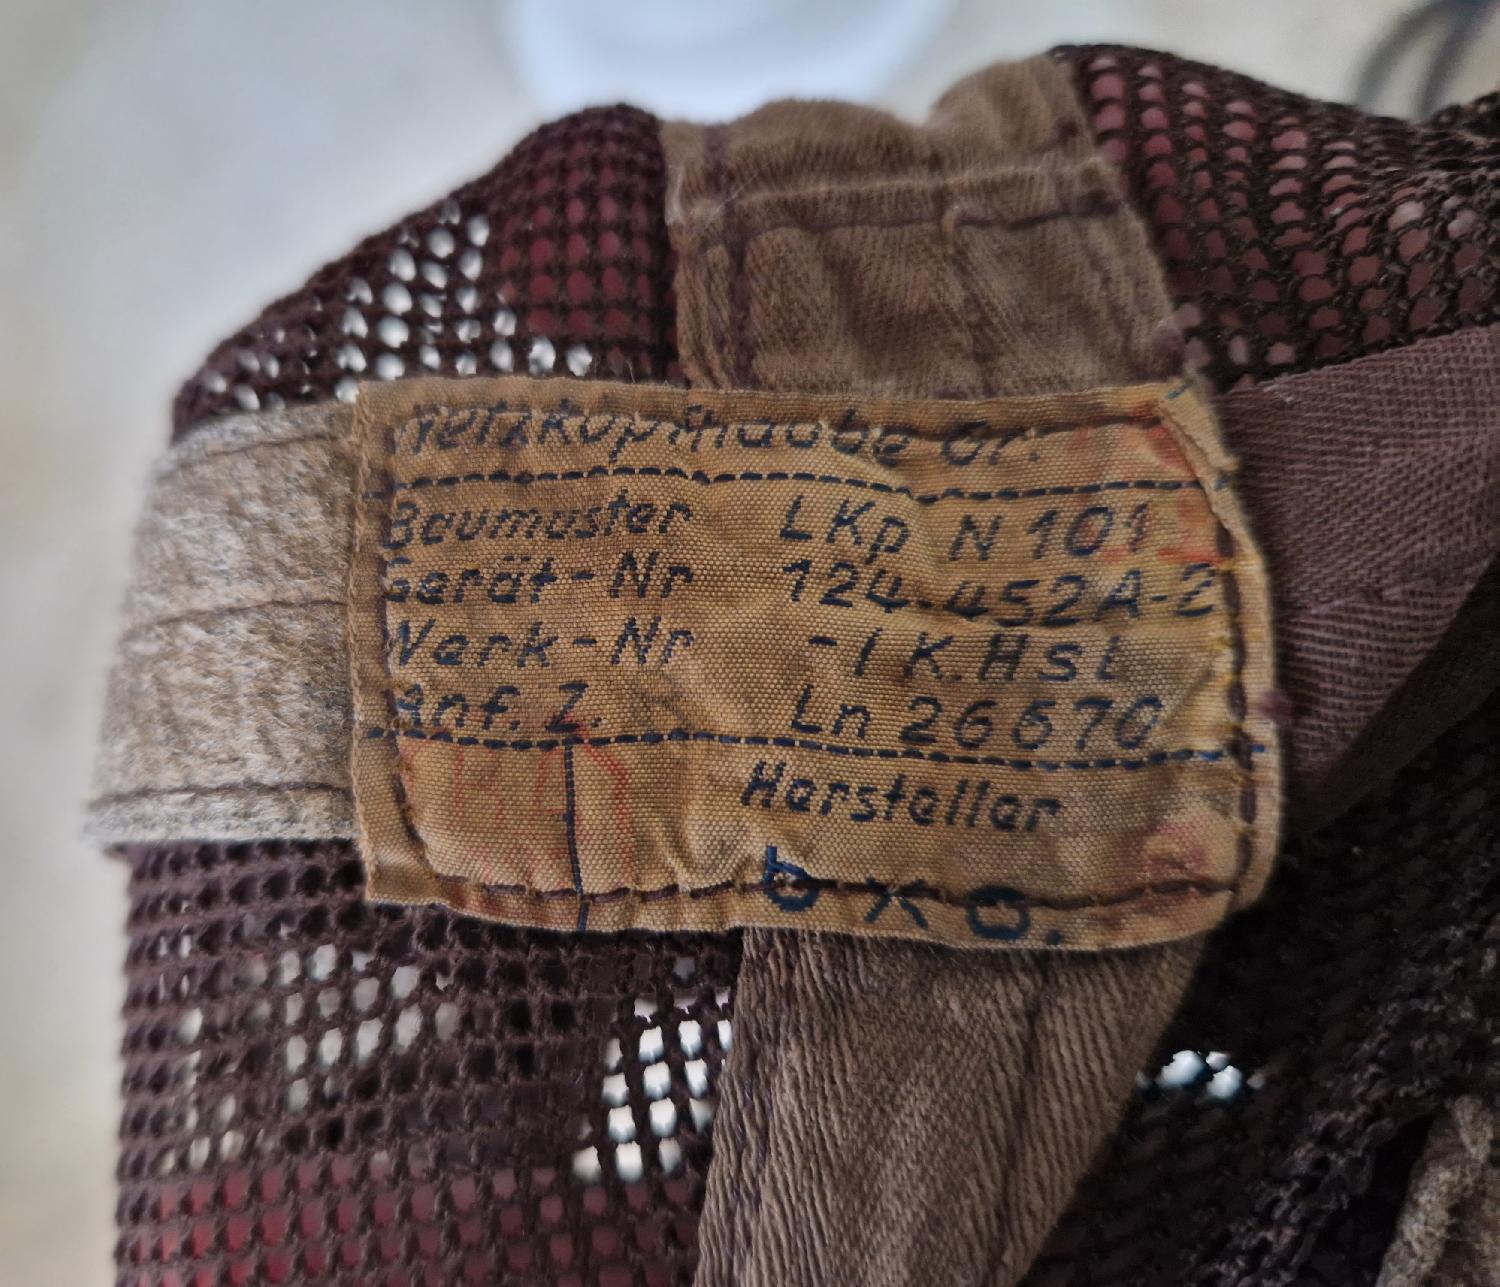 Netzkopfhaube Gr.
Baumuster LKp N 101
Gerät-Nr 124-452A-2
Werk-Nr -1 K.Hst
Anf. Z. Ln 26670
Hersteller
bxo.